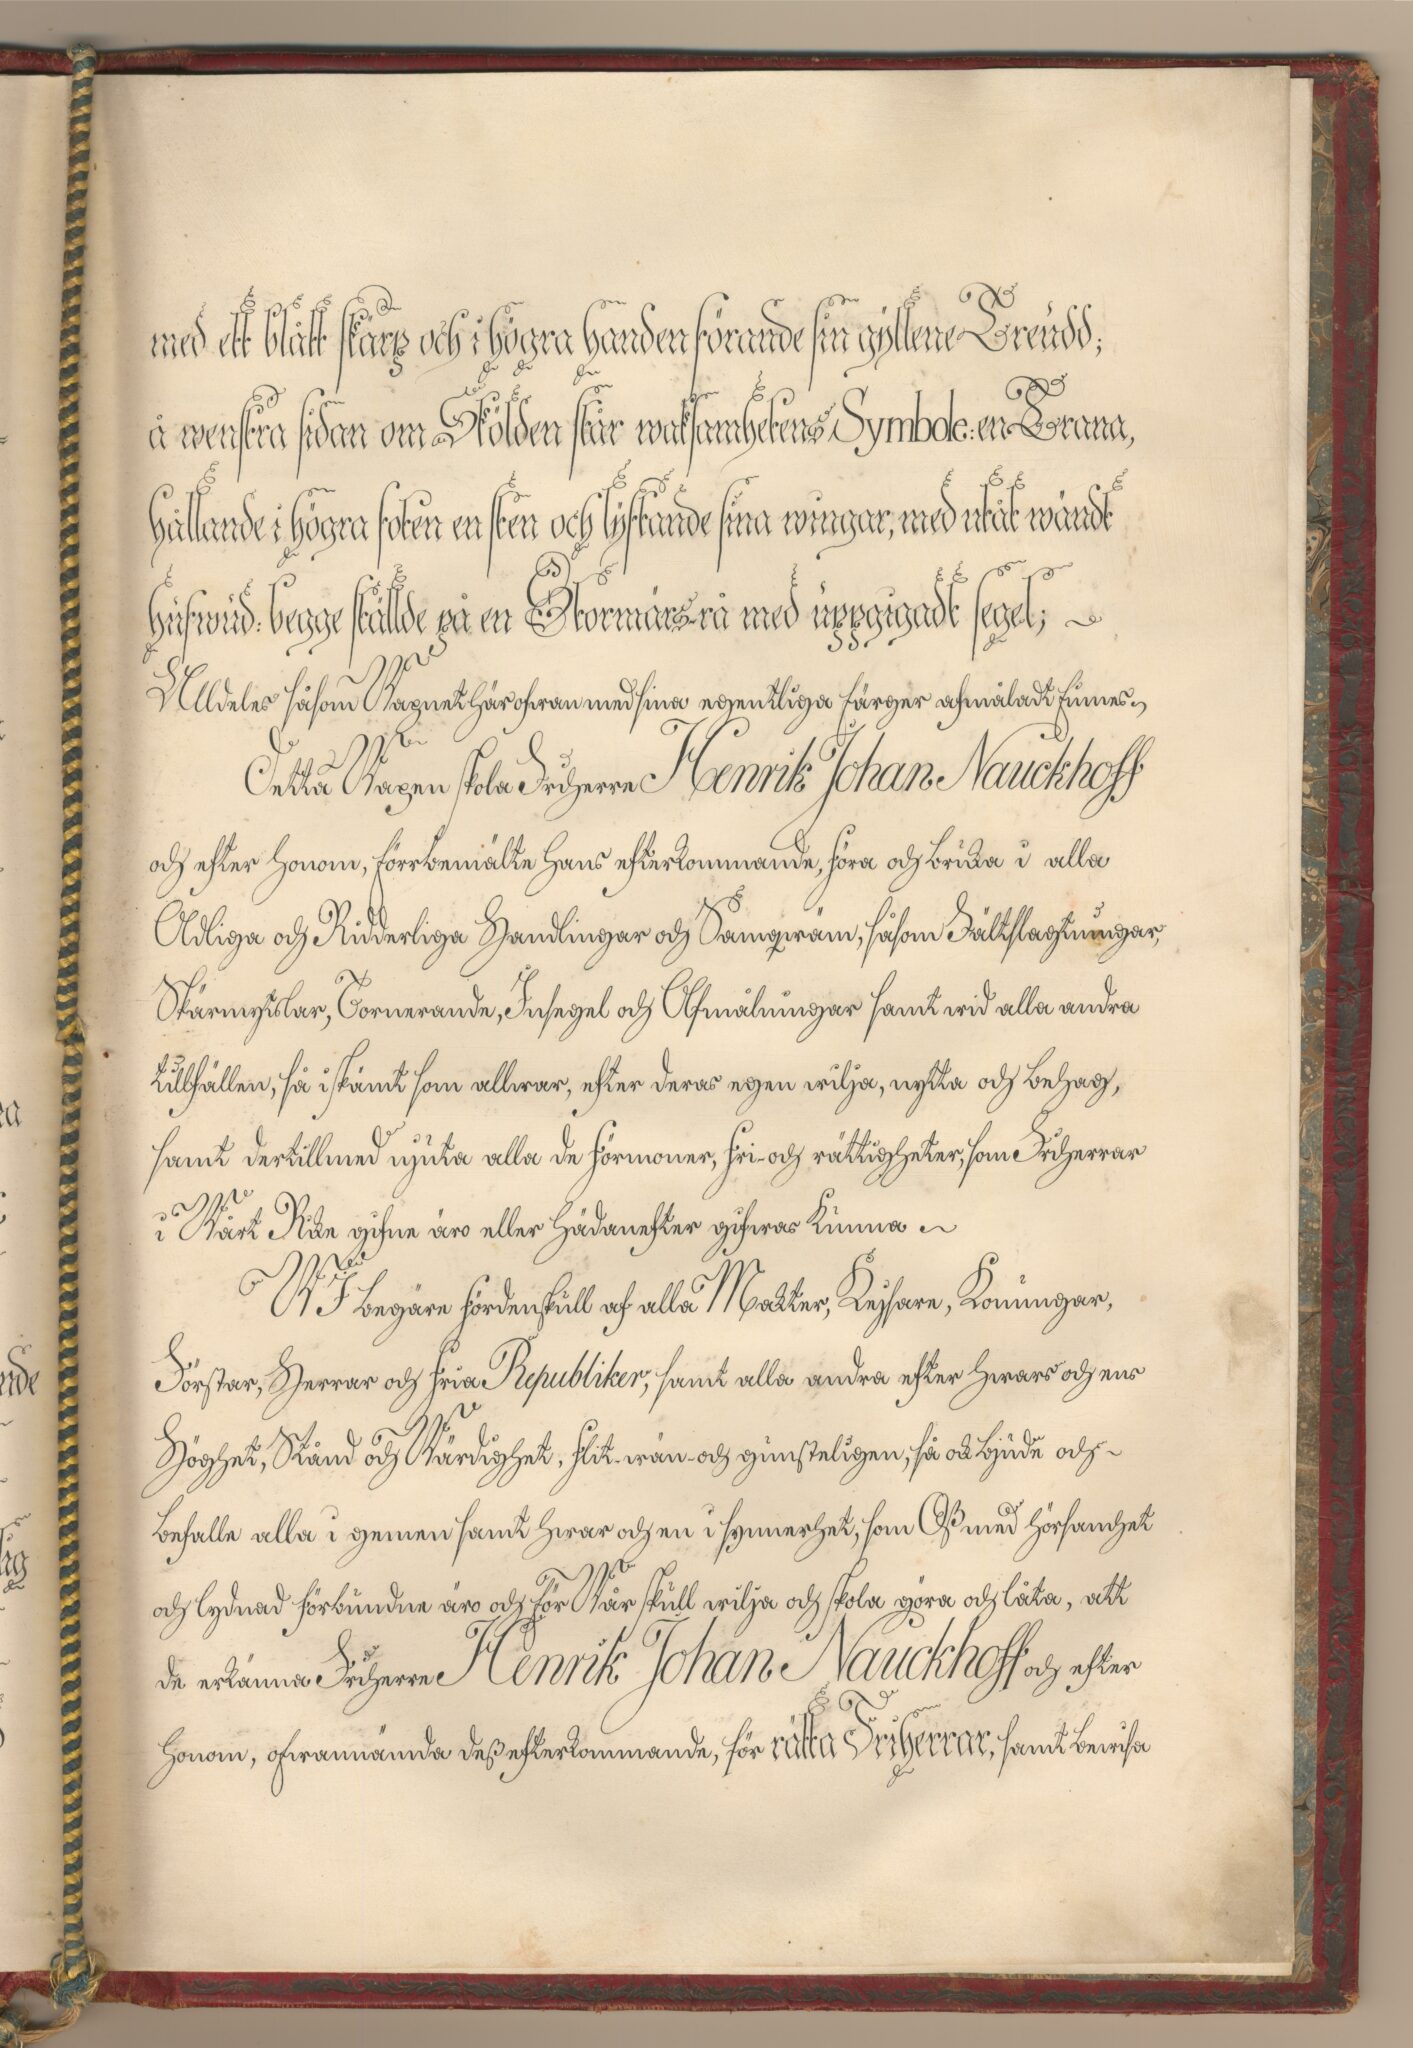 med ett blått skärp och i högra handen förande sin gyllene Treudd;
å wenstra sidan om Skölden står waksamhetens Symbole: en Trana,
hållande i högra foten en sten och lyftande sina wingar, med utåt wändt
hufwud: begge stållde på en Stormärs-rå med uppgigadt segel;
Alldeles såsom Wapnet här ofwan med sina egentliga färger afmåladt finnes.
Detta Wapen skola Friherre Henrik Johan Nauckhoff
och efter Honom, förrbemälte Hans efterkommande, föra och bruka i alla
Adliga och Ridderliga Handlingar och Samqwäm, såsom Fältslagtningar,
Skärmytslar, Tornerande, Insegel och Afmålningar samt wid alla andra
tillfällen, så i skämt som allwar, efter deras egen wilja, nytta och behag,
samt dertillmed njuta alla de förmoner, fri- och rättigheter, som Friherrar
i Wårt Rike gifne äro eller hädanefter gifwas kunna
WI begäre fördenskull af alla Makter, Kejsare, Konungar,
Förstar, Herrar och fria Republiker, samt alla andra efter hwars och ens
Höghet, Stånd och Wärdighet, flit- wän- och gunsteligen, så ock bjude och
befalle alla i gemen samt hwar och en i synnerhet, som Oß med hörsamhet
och lydnad förbundne äro och för Wår skull wilja och skola göra och låta, att
de erkänna Friherre Henrik Johan Nauckhoff och efter
Honom, ofwannämda deß efterkommande, för rätta Friherrar, samt bewisa